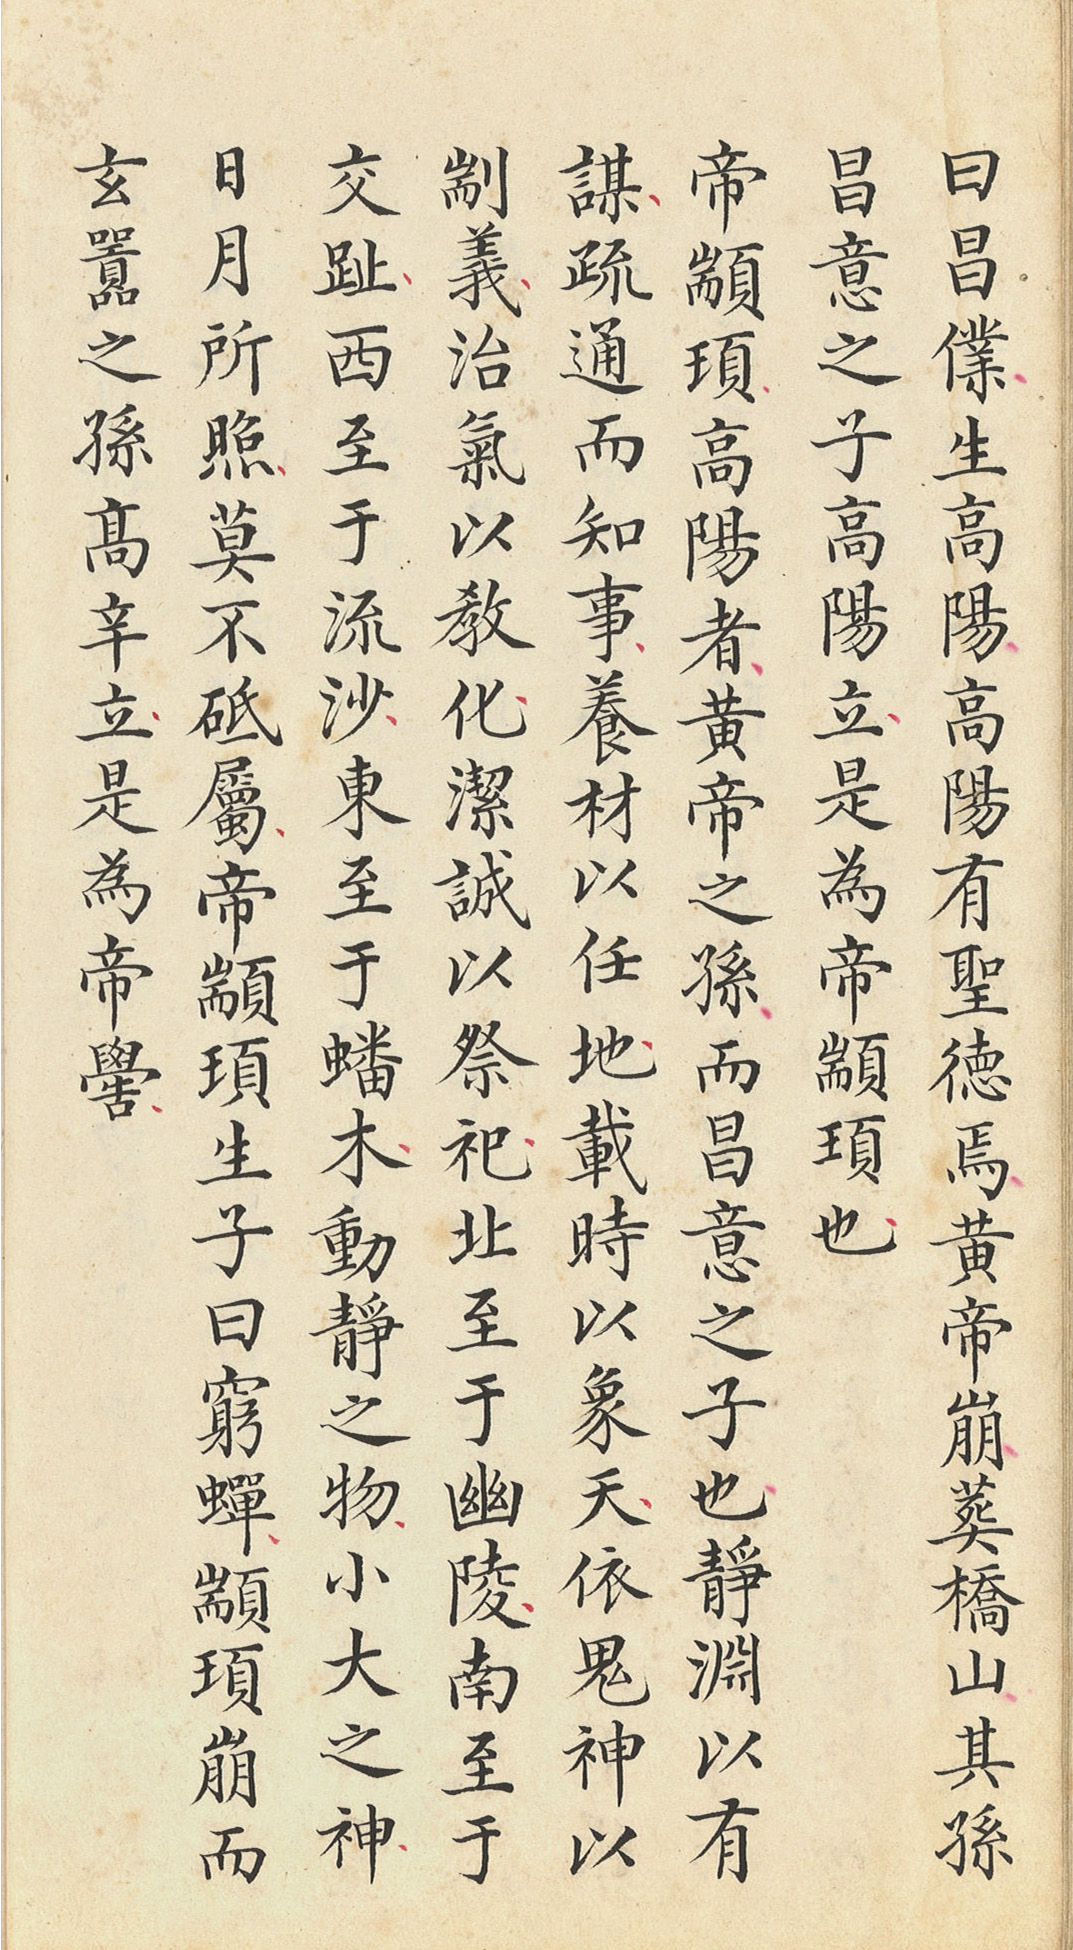 曰昌僕生高陽高陽有聖德焉黃帝崩葬橋山其孫
昌意之子高陽立是為帝顓頊也
帝顓頊高陽者黃帝之孫而昌意之子也靜淵以有
謀疏通而知事養材以任地載時以象天依鬼神以
剬義治氣以教化潔誠以祭祀北至于幽陵南至于
交趾西至于流沙東至于蟠木動靜之物小大之神
日月所照莫不砥屬帝顓頊生子曰窮蟬顓頊崩而
玄囂之孫髙辛立是為帝嚳